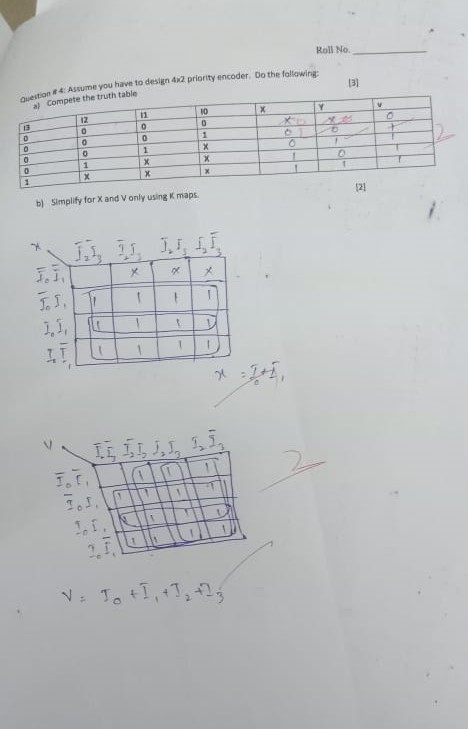 Roll No.
Question # 4: Assume you have to design 4x2 priority encoder. Do the following:
a) Compete the truth table [3]
I3 I2 I1 I0 X Y V
0 0 0 0 x x 0
0 0 0 1 0 0 1
0 0 1 X 0 1 1
0 1 X X 1 0 1
1 X X X 1 1 1
2
b) Simplify for X and V only using K maps. [2]
x Ī₂Ī₃ Ī₂I₃ I₂I₃ I₂Ī₃
Ī₀Ī₁ x x x
Ī₀I₁ 1 1 1 1
I₀I₁ 1 1 1 1
I₀Ī₁ 1 1 1 1
x = I₀+I₁
V Ī₂Ī₃ Ī₂I₃ I₂I₃ I₂Ī₃
Ī₀Ī₁ 1 1 1
Ī₀I₁ 1 1 1 1
I₀I₁ 1 1 1 1
I₀Ī₁ 1 1 1 1
2
V = I₀ + I₁ + I₂ + I₃